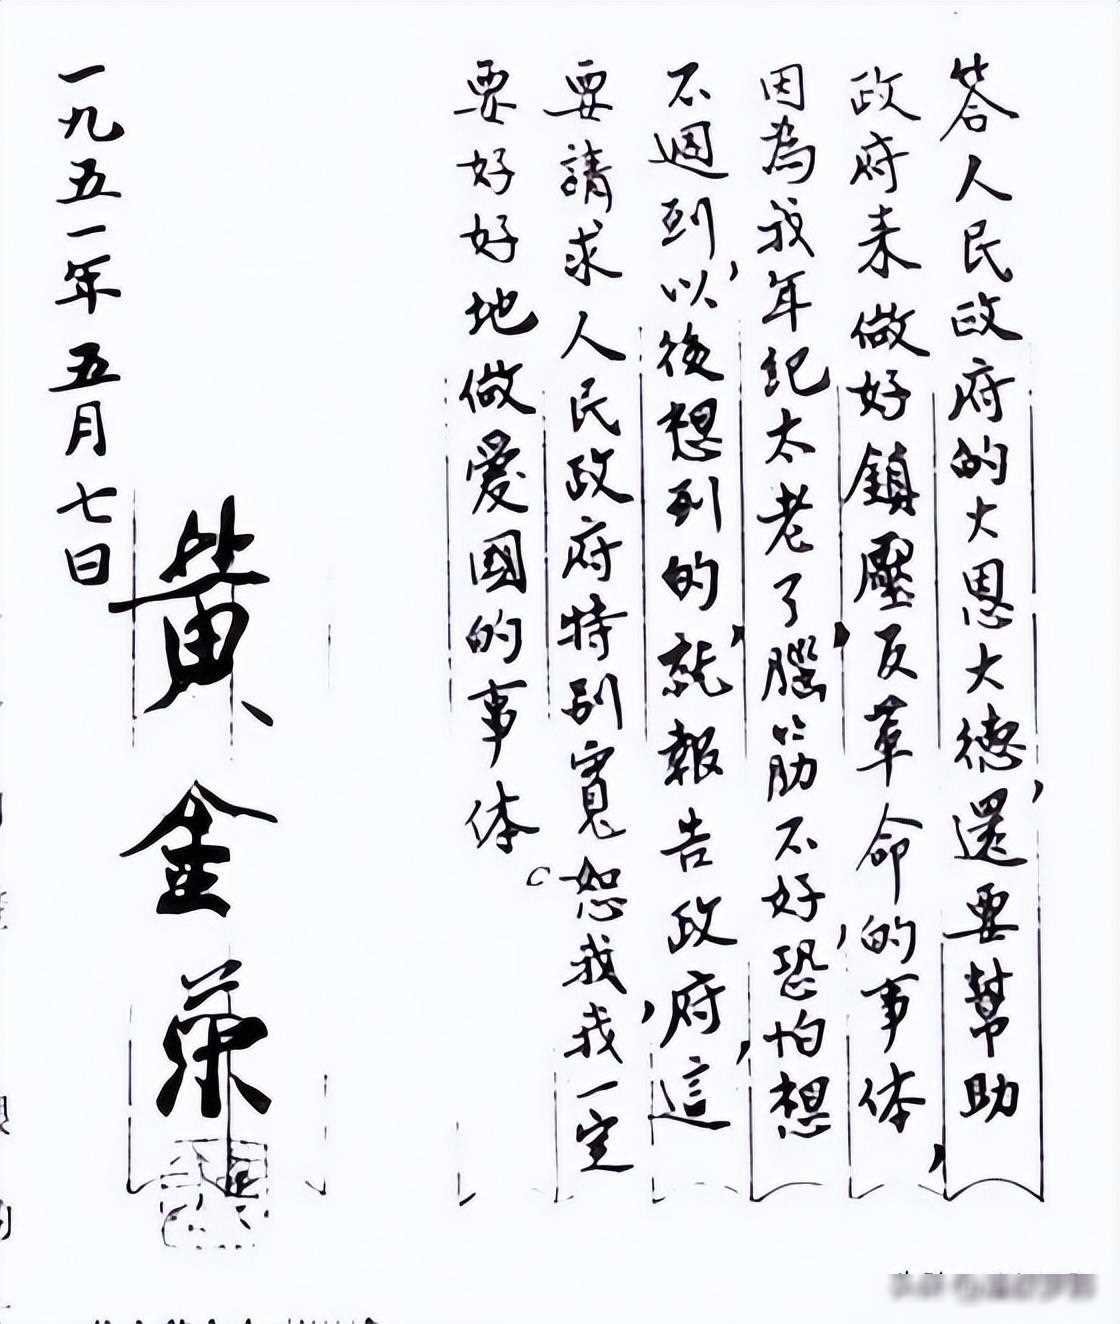 答人民政府的大恩大德,還要幫助
政府来做好鎮壓反革命的事体,
因為我年纪太老了,腦筋不好,恐怕想
不週到,以後想到的,就報告政府,這
要請求人民政府特别寬恕我,我一定
要好好地做愛國的事体。
黄金荣
一九五一年五月七日